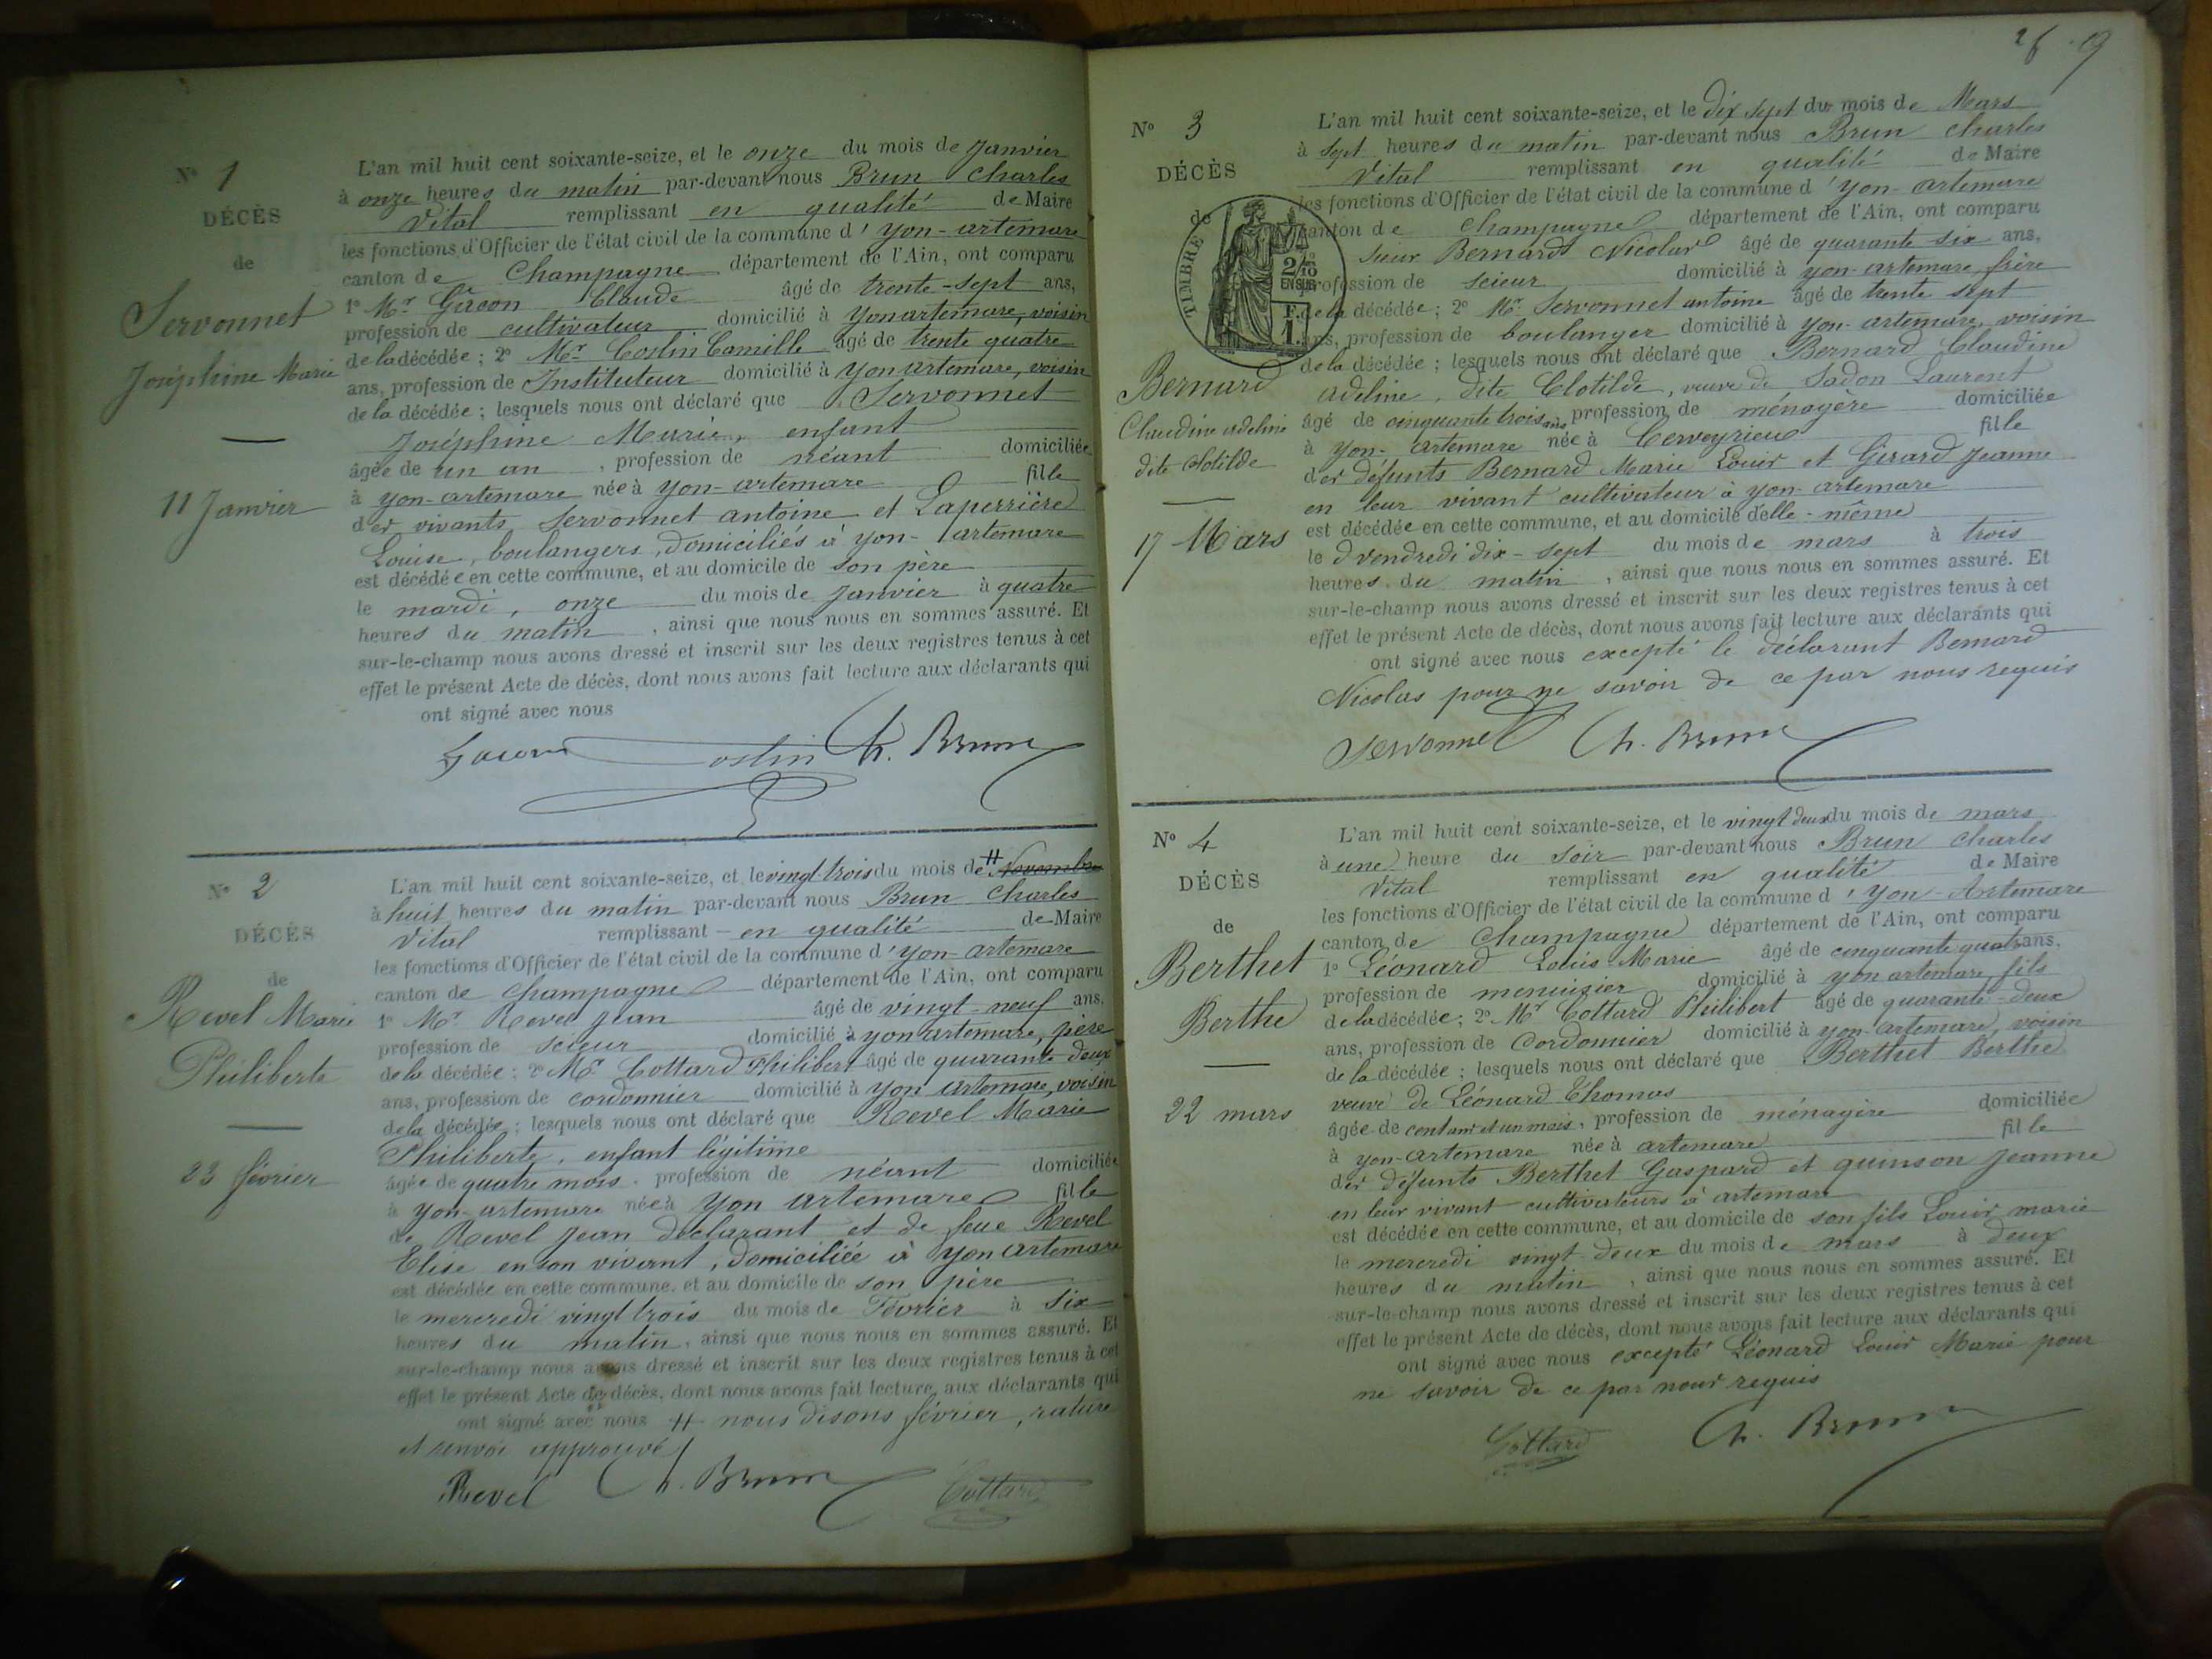 N° 1
DÉCÈS
de
Servonnet
Joséphine Marie
11 Janvier
L'an mil huit cent soixante-seize, et le onze du mois de Janvier
à onze heures du matin par-devant nous Brun Charles
Vital remplissant en qualité de Maire
les fonctions d'Officier de l'état civil de la commune d'yon-artemare
canton de Champagne département de l'Ain, ont comparu
1° Mr Claude âgé de trente-sept ans,
profession de cultivateur domicilié à yon artemare, voisin
de la décédée ; 2° Mr Costin Camille âgé de trente quatre
ans, profession de Instituteur domicilié à yon artemare, voisin
de la décédée ; lesquels nous ont déclaré que Servonnet
Joséphine Marie, enfant
âgée de un an , profession de néant domiciliée
à yon-artemare née à yon-artemare fille
des vivants, Servonnet antoine et Laperrière
Louise, boulangers, domiciliés à yon-artemare
est décédée en cette commune, et au domicile de son père
le mardi, onze du mois de Janvier à quatre
heures du matin , ainsi que nous nous en sommes assuré. Et
sur-le-champ nous avons dressé et inscrit sur les deux registres tenus à cet
effet le présent Acte de décès, dont nous avons fait lecture aux déclarants qui
ont signé avec nous
Costin Ch. Brun
N° 2
DÉCÈS
de
Revel Marie
Philiberte
23 février
L'an mil huit cent soixante-seize, et le vingt-trois du mois de # Novembre
à huit heures du matin par-devant nous Brun Charles
Vital remplissant en qualité de Maire
les fonctions d'Officier de l'état civil de la commune d'yon-artemare
canton de Champagne département de l'Ain, ont comparu
1° Mr Revel Jean âgé de vingt-neuf ans,
profession de scieur domicilié à yon artemare, père
de la décédée ; 2° Mr Cottard Philibert âgé de quarante-deux
ans, profession de cordonnier domicilié à yon artemare, voisin
de la décédée ; lesquels nous ont déclaré que Revel Marie
Philiberte, enfant légitime
âgée de quatre mois, profession de néant domiciliée
à yon-artemare née à yon artemare fille
de Revel Jean déclarant et de feue Revel
Elise en son vivant, domiciliée à yon artemare
est décédée en cette commune, et au domicile de son père
le mercredi vingt trois du mois de Février à six
heures du matin, ainsi que nous nous en sommes assuré. Et
sur-le-champ nous avons dressé et inscrit sur les deux registres tenus à cet
effet le présent Acte de décès, dont nous avons fait lecture aux déclarants qui
ont signé avec nous # nous disons février, rature
et renvoi approuvé
Revel Ch. Brun Cottard
N° 3
DÉCÈS
de
TIMBRE
2/10
EN SUS
F.
1.
Bernard
Claudine adeline
dite Clotilde
17 Mars
L'an mil huit cent soixante-seize, et le dix sept du mois de Mars
à sept heures du matin par-devant nous Brun Charles
Vital remplissant en qualité de Maire
les fonctions d'Officier de l'état civil de la commune d'yon-artemare
canton de Champagne département de l'Ain, ont comparu
sieur Bernard Nicolas âgé de quarante six ans,
profession de scieur domicilié à yon-artemare, frère
de la décédée ; 2° Mr Servonnet antoine âgé de trente sept
ans, profession de boulanger domicilié à yon-artemare, voisin
de la décédée ; lesquels nous ont déclaré que Bernard Claudine
adeline, dite Clotilde, veuve de Sadon Laurent
âgé de cinquante trois ans, profession de ménagère domiciliée
à yon-artemare née à Cerveyrieu fille
des défunts Bernard Marie Louis et Girard Jeanne
en leur vivant cultivateur à yon-artemare
est décédée en cette commune, et au domicile d'elle-même
le vendredi dix-sept du mois de mars à trois
heures du matin , ainsi que nous nous en sommes assuré. Et
sur-le-champ nous avons dressé et inscrit sur les deux registres tenus à cet
effet le présent Acte de décès, dont nous avons fait lecture aux déclarants qui
ont signé avec nous excepté le déclarant Bernard
Nicolas pour ne savoir de ce par nous requis
Servonnet Ch. Brun
N° 4
DÉCÈS
de
Berthet
Berthe
22 mars
L'an mil huit cent soixante-seize, et le vingt deux du mois de mars
à une heure du soir par-devant nous Brun Charles
Vital remplissant en qualité de Maire
les fonctions d'Officier de l'état civil de la commune d'yon-Artemare
canton de Champagne département de l'Ain, ont comparu
1° Léonard Louis Marie âgé de cinquante quatre ans,
profession de menuisier domicilié à yon artemare, fils
de la décédée ; 2° Mr Cottard Philibert âgé de quarante-deux
ans, profession de Cordonnier domicilié à yon-artemare, voisin
de la décédée ; lesquels nous ont déclaré que Berthet Berthe
veuve de Léonard Thomas
âgée de cent ans et un mois, profession de ménagère domiciliée
à yon-artemare née à artemare fille
des défunts Berthet Gaspard et quinson Jeanne
en leur vivant cultivateurs à artemare
est décédée en cette commune, et au domicile de son fils Louis marie
le mercredi vingt-deux du mois de mars à deux
heures du matin , ainsi que nous nous en sommes assuré. Et
sur-le-champ nous avons dressé et inscrit sur les deux registres tenus à cet
effet le présent Acte de décès, dont nous avons fait lecture aux déclarants qui
ont signé avec nous excepté Léonard Louis Marie pour
ne savoir de ce par nous requis
Cottard Ch. Brun